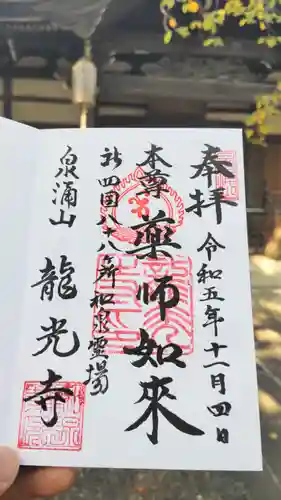 奉拝
令和五年十一月四日
本尊
薬師如来
新四国八十八ヶ所和泉霊場
泉涌山
龍光寺